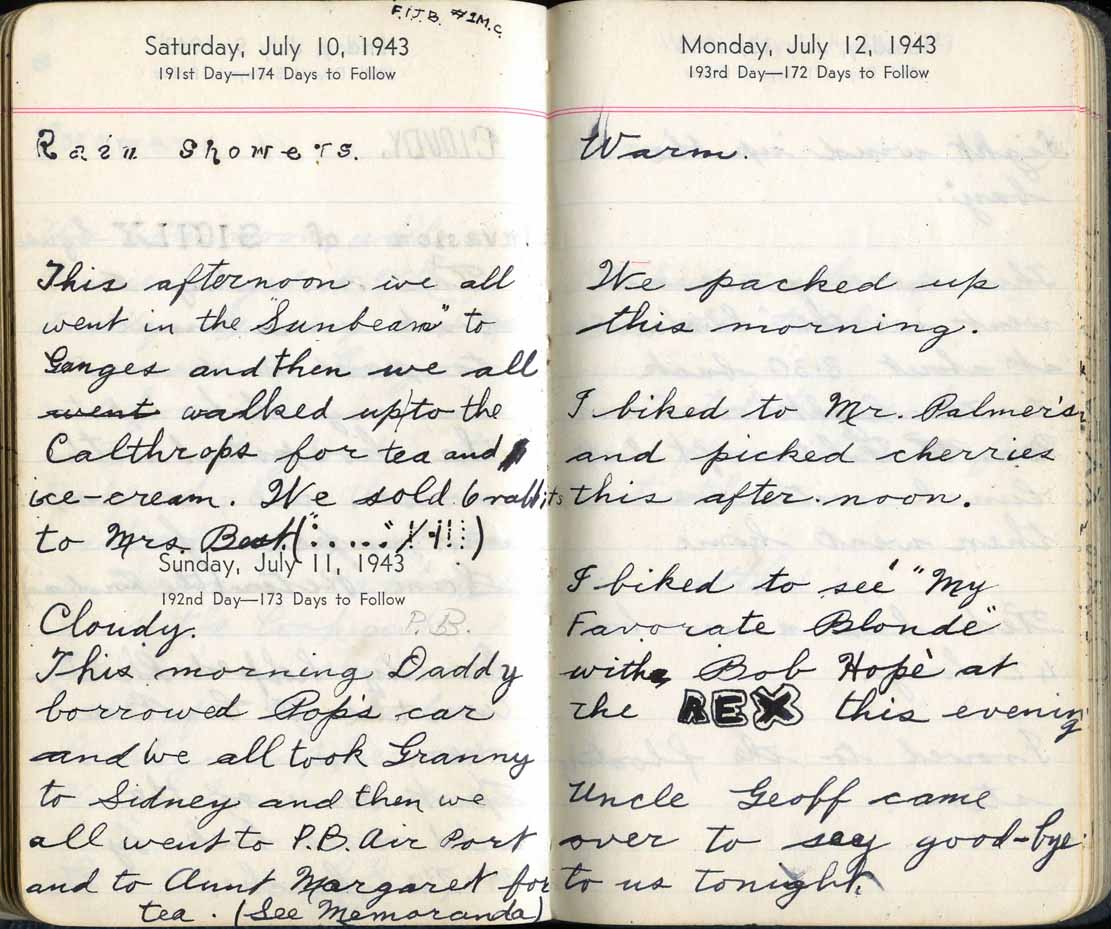 F.I.J.B. #1M.C.
Saturday, July 10, 1943
191st Day—174 Days to Follow
Rain showers.
This afternoon we all
went in the "Sunbeam" to
Ganges and then we all
went walked up to the
Calthrops for tea and
ice-cream. We sold 6 rabbits
to Mrs. Best.
Sunday, July 11, 1943
192nd Day—173 Days to Follow
Cloudy. P.B.
This morning Daddy
borrowed Pop's car
and we all took Granny
to Sidney and then we
all went to P.B. Air Port
and to Aunt Margaret for
tea. (See Memoranda)
Monday, July 12, 1943
193rd Day—172 Days to Follow
Warm.
We packed up
this morning.
I biked to Mr. Palmer's
and picked cherries
this after.noon.
I biked to see "My
Favorate Blonde"
with Bob Hope at
the REX this evening
Uncle Geoff came
over to say good-bye
to us tonight.